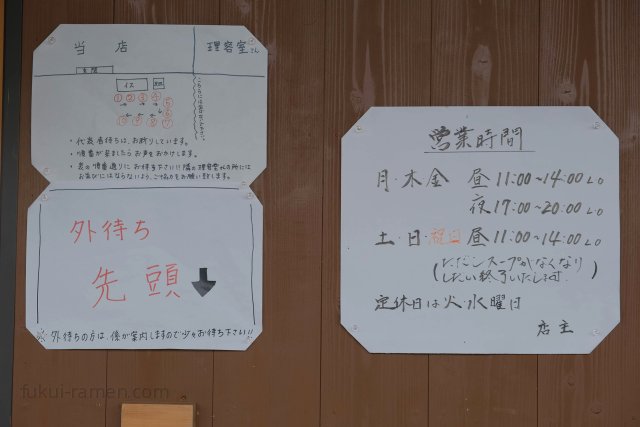 当店
理容室さん
玄関
イス
①②③④
⑤
⑥
⑩⑨⑧⑦
・代表者待ちは、お断りしています。
・順番が来ましたらお声をおかけします。
・表の順番通りにお待ち下さい!! 隣の理容室の所には
お並びにはならないよう、ご協力をお願い致します。
外待ち
先頭
外待ちの方は、係が案内しますので少々お待ち下さい!!
営業時間
月・木・金 昼 11:00~14:00 L.O
夜 17:00~20:00 L.O
土・日・祝日 昼 11:00~14:00 L.O
(ただしスープがなくなり
しだい終了いたします。)
定休日は火・水曜日
店主
fukui-ramen.com